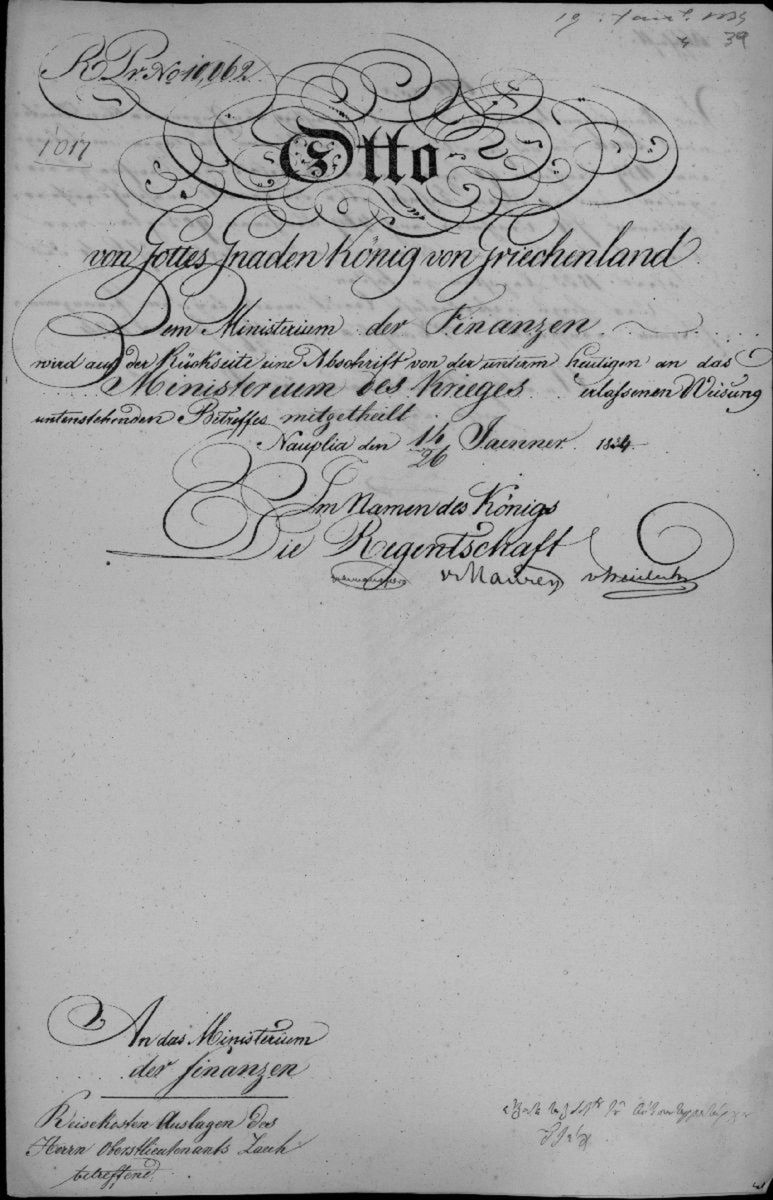 39
R Pr. No 10,162
1017
Otto
von Gottes Gnaden König von Griechenland
Dem Ministerium der Finanzen
wird auf der Rückseite eine Abschrift von der unterm heutigen an das
Ministerium des Krieges erlassenen Weisung
untenstehenden Betreffes mitgetheilt
Nauplia den 14/26 Jaenner 1834
Im Namen des Königs
Die Regentschaft
v. Maurer
An das Ministerium
der Finanzen
Reisekosten Auslagen des
Herrn Oberstlieutenants
betreffend